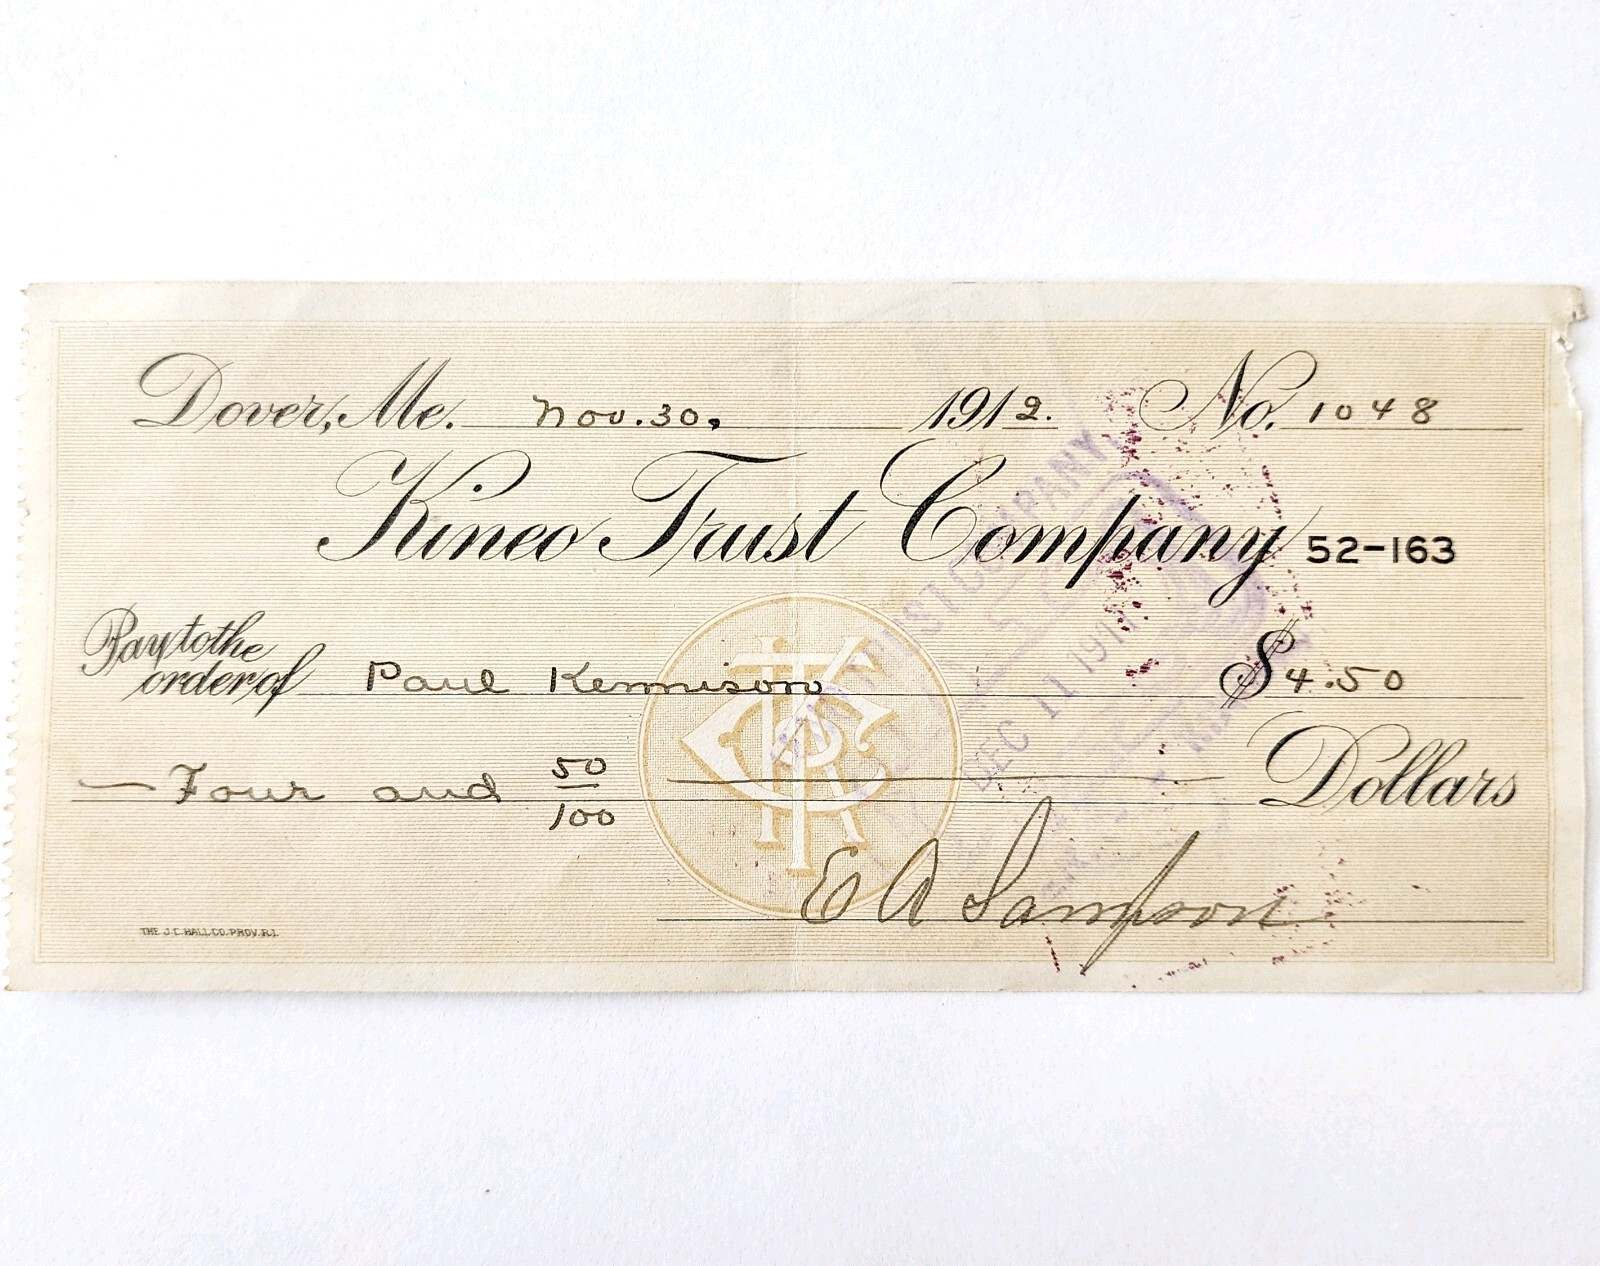 Dover, Me. Nov. 30, 1912. No. 1048
Kineo Trust Company 52-163
Pay to the order of Paul Kennison $4.50
Four and 50/100 Dollars
E A Sampson
THE J.C. HALL CO. PROV. R.I.
TRUST COMPANY,
DEC 11 191